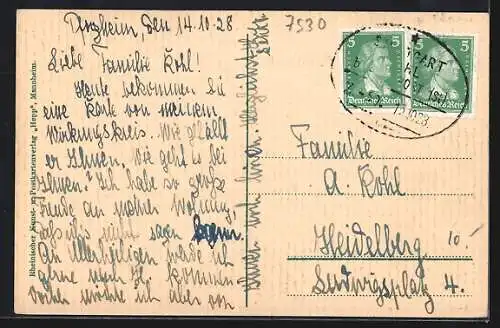 Pforzheim, den 14.10.28
7530
Liebe Familie Kohl!
Heute bekommen Sie
eine Karte von meinem
Wirkungskreis. Wie gefällt
er Ihnen. Wie geht es bei
Ihnen? Ich habe so große
Freude an meiner Wohnung,
nicht sagen
An Allerheiligen werde ich
gerne nach H. kommen.
Vorher möchte ich aber von
Rheinischer Kunst- u. Postkartenverlag „Hepp", Mannheim.
5 5
Deutsches Reich Deutsches Reich
Familie
A. Kohl
Heidelberg
Ludwigsplatz 4.
10